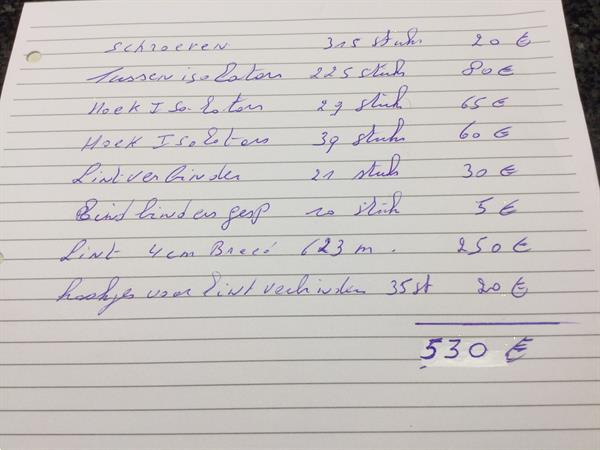 schroeven 315 stuk 20 €
Tussen isolators 225 stuk 80 €
Hoek Isolators 29 stuk 65 €
Hoek Isolators 39 stuk 60 €
Lintverbinder 21 stuk 30 €
Eindbinders gesp 10 stuk 5 €
Lint 4 cm Breed 623 m. 250 €
haakjes voor Lintverbinden 35 st 20 €
530 €